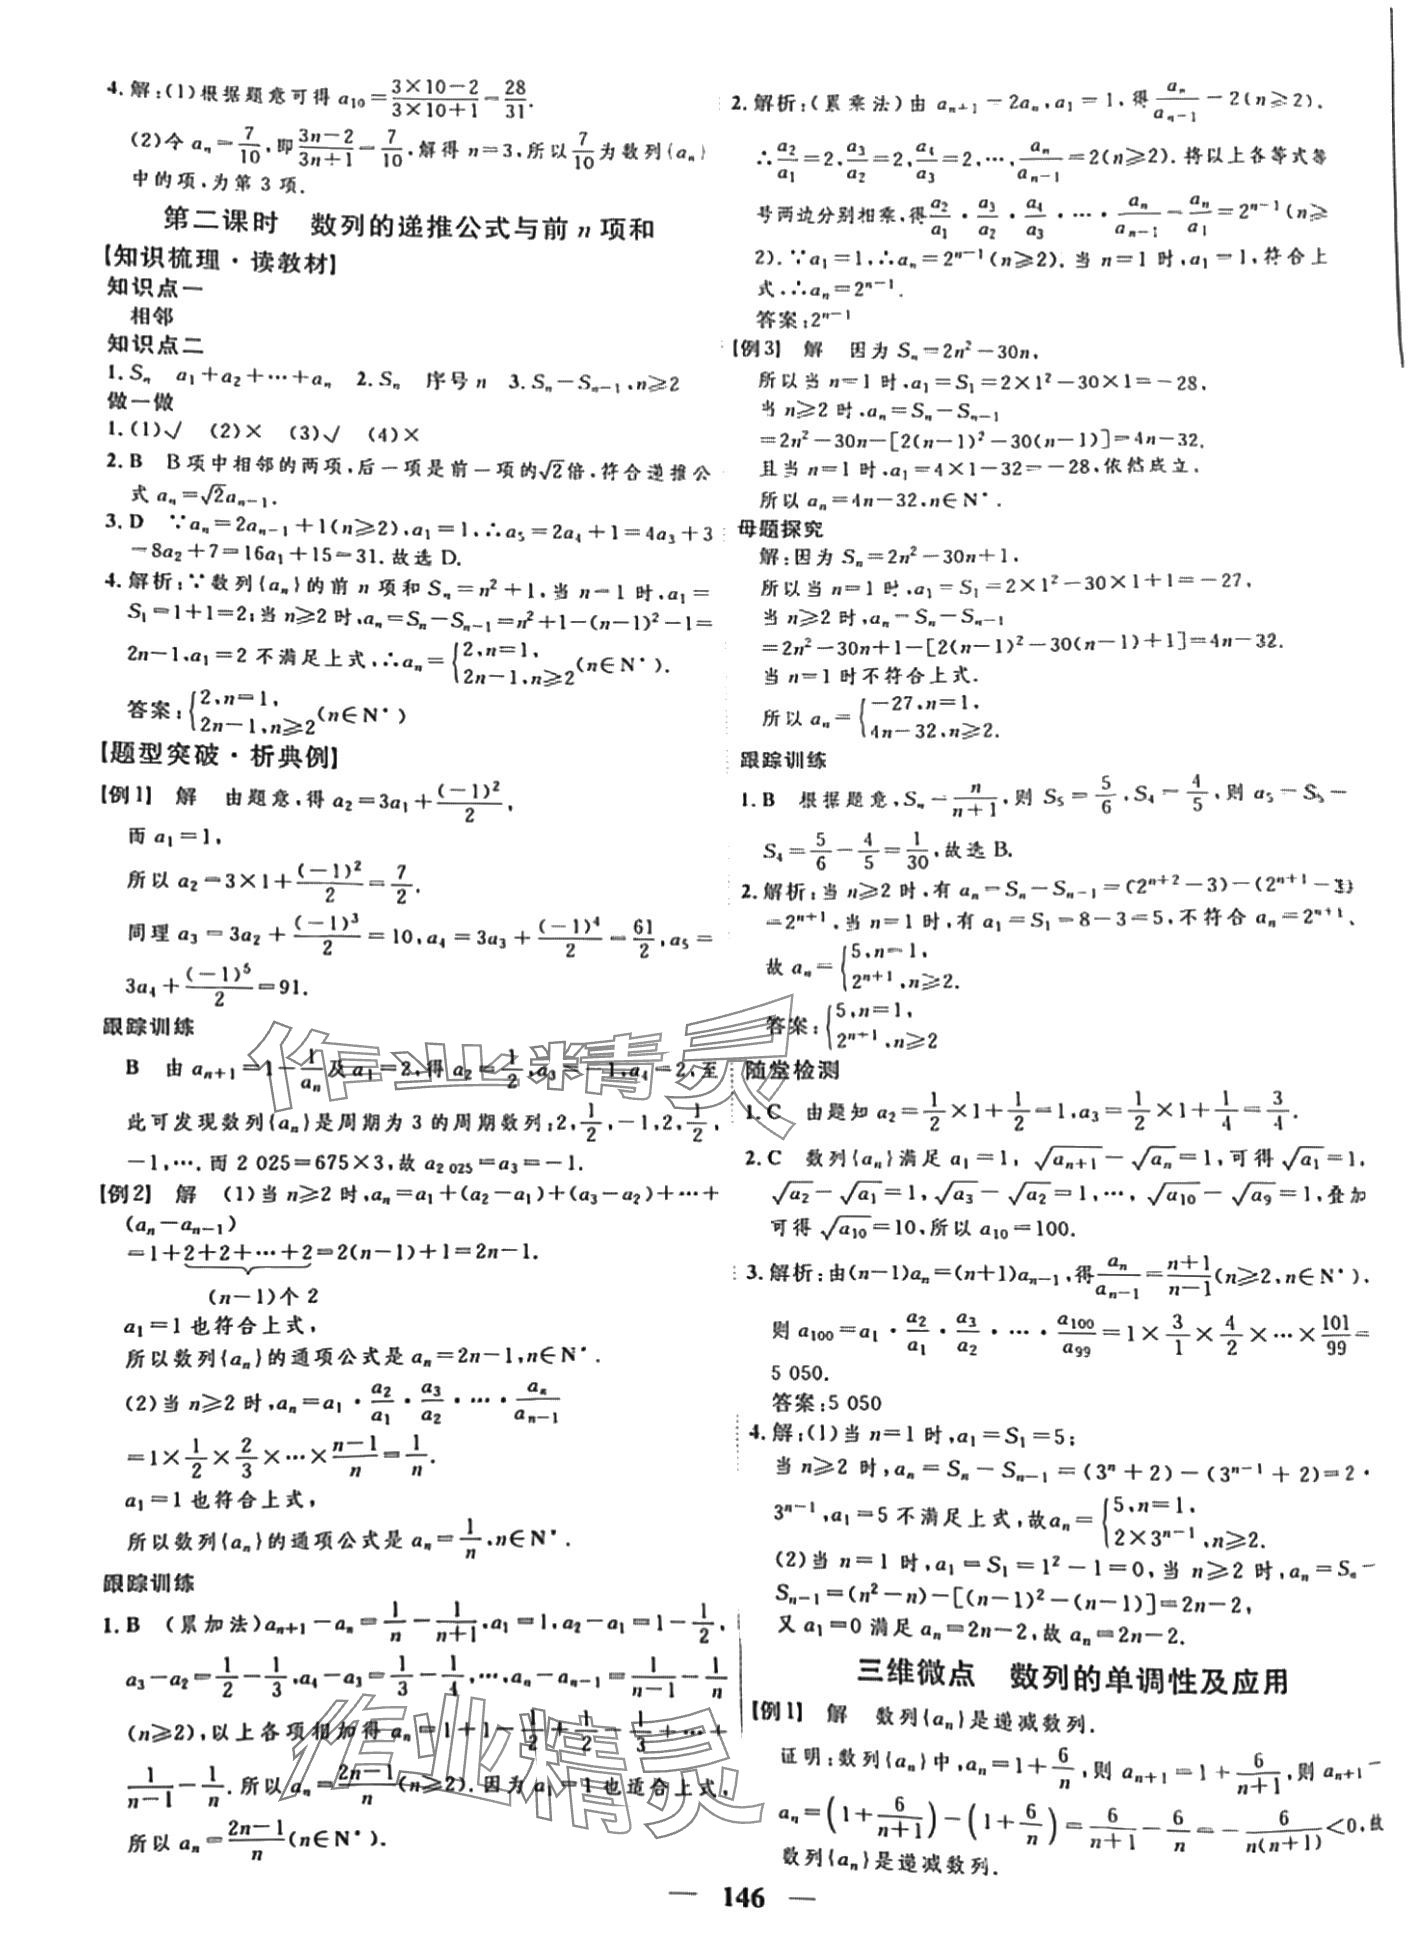 4.解:(1)根据题意可得 a₁₀=(3×10-2)/(3×10+1)=28/31.
(2)令 aₙ=7/10,即(3n-2)/(3n+1)=7/10,解得 n=3,所以7/10为数列{aₙ}
中的项,为第 3 项.
第二课时 数列的递推公式与前 n 项和
【知识梳理·读教材】
知识点一
相邻
知识点二
1.Sₙ a₁+a₂+…+aₙ 2.Sₙ 序号 n 3.Sₙ-Sₙ₋₁,n≥2
做一做
1.(1)√ (2)× (3)√ (4)×
2.B B 项中相邻的两项,后一项是前一项的√2倍,符合递推公
式 aₙ=√2aₙ₋₁.
3.D ∵aₙ=2aₙ₋₁+1(n≥2),a₁=1,∴a₅=2a₄+1=4a₃+3
=8a₂+7=16a₁+15=31.故选 D.
4.解析:∵数列{aₙ}的前 n 项和 Sₙ=n²+1,当 n=1 时,a₁=
S₁=1+1=2;当 n≥2 时,aₙ=Sₙ-Sₙ₋₁=n²+1-(n-1)²-1=
2n-1,a₁=2 不满足上式,∴aₙ={2,n=1, 2n-1,n≥2 (n∈N*).
答案:{2,n=1, 2n-1,n≥2 (n∈N*)
【题型突破·析典例】
【例1】 解 由题意,得 a₂=3a₁+(-1)²/2,
而 a₁=1,
所以 a₂=3×1+(-1)²/2=7/2.
同理 a₃=3a₂+(-1)³/2=10,a₄=3a₃+(-1)⁴/2=61/2,a₅=
3a₄+(-1)⁵/2=91.
跟踪训练
B 由 aₙ₊₁=1-1/aₙ及 a₁=2,得 a₂=1/2,a₃=-1,a₄=2,至
此可发现数列{aₙ}是周期为 3 的周期数列:2,1/2,-1,2,1/2,
-1,….而 2 025=675×3,故 a₂ ₀₂₅=a₃=-1.
【例2】 解 (1)当 n≥2 时,aₙ=a₁+(a₂-a₁)+(a₃-a₂)+…+
(aₙ-aₙ₋₁)
=1+2+2+…+2=2(n-1)+1=2n-1.
(n-1)个 2
a₁=1 也符合上式,
所以数列{aₙ}的通项公式是 aₙ=2n-1,n∈N*.
(2)当 n≥2 时,aₙ=a₁·a₂/a₁·a₃/a₂·…·aₙ/aₙ₋₁
=1×1/2×2/3×…×(n-1)/n=1/n.
a₁=1 也符合上式,
所以数列{aₙ}的通项公式是 aₙ=1/n,n∈N*.
跟踪训练
1.B (累加法)aₙ₊₁-aₙ=1/n-1/(n+1),a₁=1,a₂-a₁=1-1/2,
a₃-a₂=1/2-1/3,a₄-a₃=1/3-1/4,…,aₙ-aₙ₋₁=1/(n-1)-1/n
(n≥2),以上各项相加得 aₙ=1+1-1/2+1/2-1/3+…+
1/(n-1)-1/n.所以 aₙ=(2n-1)/n(n≥2).因为 a₁=1 也适合上式,
所以 aₙ=(2n-1)/n(n∈N*).
2.解析:(累乘法)由 aₙ₊₁=2aₙ,a₁=1,得aₙ/aₙ₋₁=2(n≥2).
∴a₂/a₁=2,a₃/a₂=2,a₄/a₃=2,…,aₙ/aₙ₋₁=2(n≥2).将以上各等式等
号两边分别相乘,得a₂/a₁·a₃/a₂·a₄/a₃·…·aₙ/aₙ₋₁=aₙ/a₁=2ⁿ⁻¹(n≥
2).∵a₁=1,∴aₙ=2ⁿ⁻¹(n≥2).当 n=1 时,a₁=1,符合上
式,∴aₙ=2ⁿ⁻¹.
答案:2ⁿ⁻¹
【例3】 解 因为 Sₙ=2n²-30n,
所以当 n=1 时,a₁=S₁=2×1²-30×1=-28,
当 n≥2 时,aₙ=Sₙ-Sₙ₋₁
=2n²-30n-[2(n-1)²-30(n-1)]=4n-32.
且当 n=1 时,a₁=4×1-32=-28,依然成立.
所以 aₙ=4n-32,n∈N*.
母题探究
解:因为 Sₙ=2n²-30n+1,
所以当 n=1 时,a₁=S₁=2×1²-30×1+1=-27,
当 n≥2 时,aₙ=Sₙ-Sₙ₋₁
=2n²-30n+1-[2(n-1)²-30(n-1)+1]=4n-32.
当 n=1 时不符合上式.
所以 aₙ={-27,n=1, 4n-32,n≥2.
跟踪训练
1.B 根据题意,Sₙ=n/(n+1),则 S₅=5/6,S₄=4/5,则 a₅=S₅-
S₄=5/6-4/5=1/30,故选 B.
2.解析:当 n≥2 时,有 aₙ=Sₙ-Sₙ₋₁=(2ⁿ⁺²-3)-(2ⁿ⁺¹-3)
=2ⁿ⁺¹,当 n=1 时,有 a₁=S₁=8-3=5,不符合 aₙ=2ⁿ⁺¹,
故 aₙ={5,n=1, 2ⁿ⁺¹,n≥2.
答案:{5,n=1, 2ⁿ⁺¹,n≥2
随堂检测
1.C 由题知 a₂=1/2×1+1/2=1,a₃=1/2×1+1/4=3/4.
2.C 数列{aₙ}满足 a₁=1, √aₙ₊₁-√aₙ=1,可得√a₁=1,
√a₂-√a₁=1,√a₃-√a₂=1,…,√a₁₀-√a₉=1,叠加
可得√a₁₀=10,所以 a₁₀=100.
3.解析:由(n-1)aₙ=(n+1)aₙ₋₁,得aₙ/aₙ₋₁=(n+1)/(n-1)(n≥2,n∈N*).
则 a₁₀₀=a₁·a₂/a₁·a₃/a₂·…·a₁₀₀/a₉₉=1×3/1×4/2×…×101/99=
5 050.
答案:5 050
4.解:(1)当 n=1 时,a₁=S₁=5;
当 n≥2 时,aₙ=Sₙ-Sₙ₋₁=(3ⁿ+2)-(3ⁿ⁻¹+2)=2·
3ⁿ⁻¹,a₁=5 不满足上式,故aₙ={5,n=1, 2×3ⁿ⁻¹,n≥2.
(2)当 n=1 时,a₁=S₁=1²-1=0,当 n≥2 时,aₙ=Sₙ-
Sₙ₋₁=(n²-n)-[(n-1)²-(n-1)]=2n-2,
又 a₁=0 满足 aₙ=2n-2,故 aₙ=2n-2.
三维微点 数列的单调性及应用
【例1】 解 数列{aₙ}是递减数列.
证明:数列{aₙ}中,aₙ=1+6/n,则 aₙ₊₁=1+6/(n+1),则 aₙ₊₁-
aₙ=(1+6/(n+1))-(1+6/n)=6/(n+1)-6/n=-6/(n(n+1))<0,故
数列{aₙ}是递减数列.
— 146 —
作业精灵
作业精灵